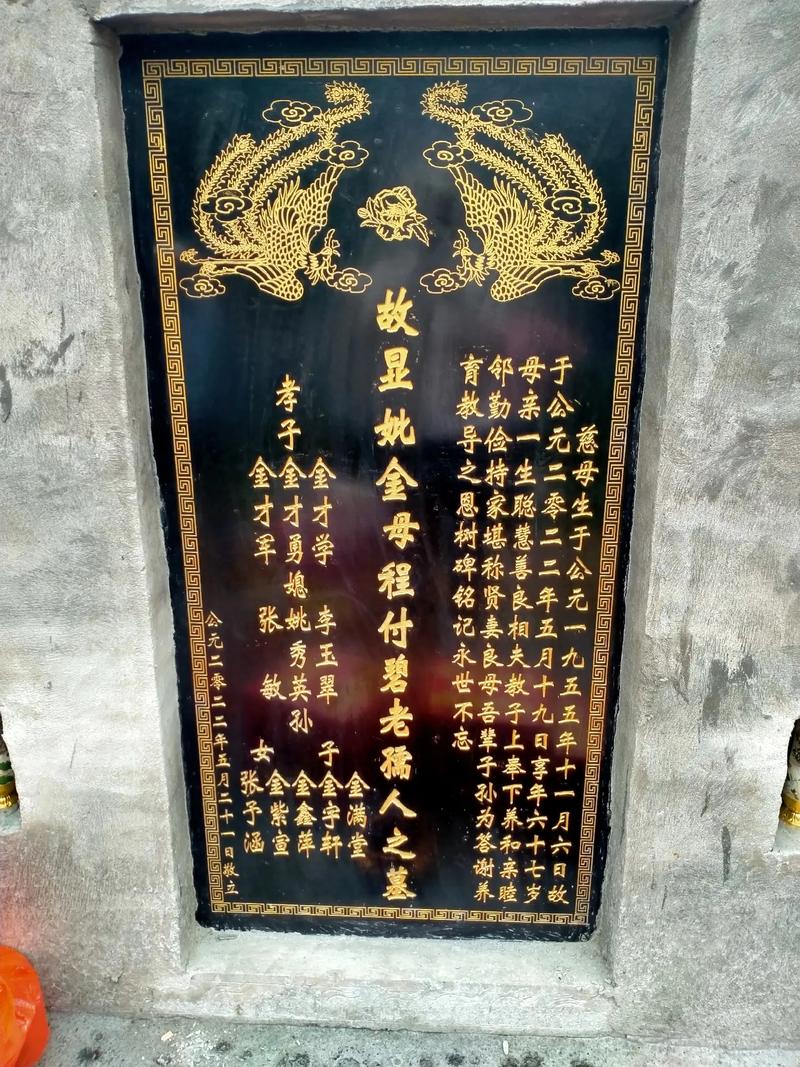 慈母生于公元一九五五年十一月六日故
于公元二零二二年五月十九日享年六十七岁
母亲一生聪慧善良相夫教子上奉下养和亲睦
邻勤俭持家堪称贤妻良母吾辈子孙为答谢养
育教导之恩树碑铭记永世不忘
故显妣金母程付碧老孺人之墓
孝子
金才学
金才勇
金才军
媳
李玉翠
姚秀英
张敏
孙
子
金满堂
金宇轩
女
金鑫萍
金紫宣
张子涵
公元二零二二年五月二十一日敬立